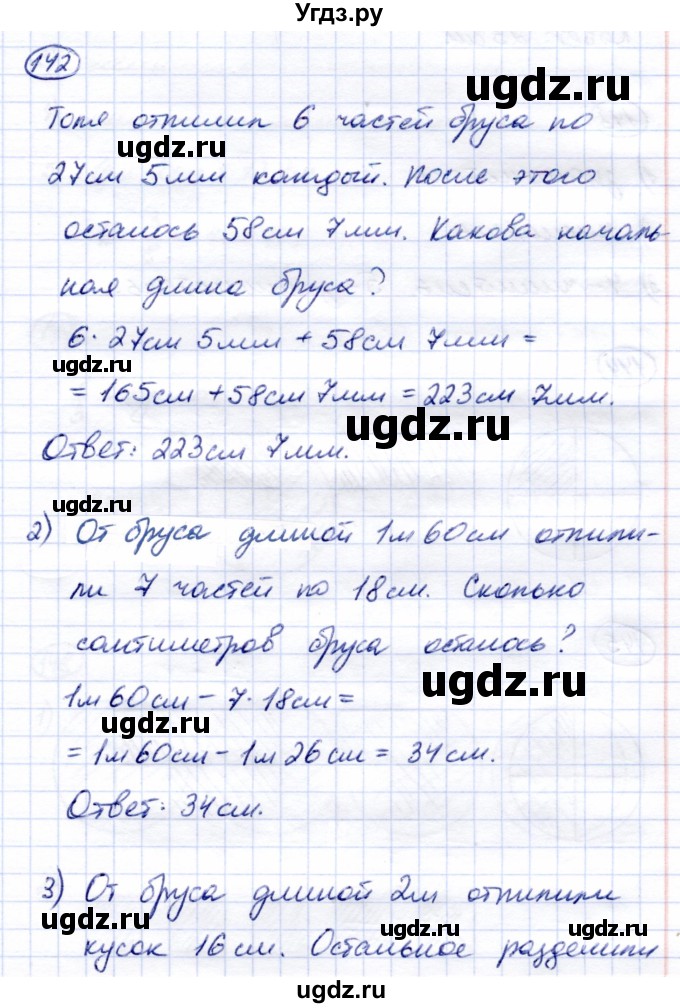 Угдз.ру
142
Толя отпилил 6 частей бруса по
27см 5мм каждый. После этого
осталось 58см 7мм. Какова началь-
ная длина бруса?
6· 27см 5мм + 58см 7мм =
= 165см + 58см 7мм = 223см 7мм.
Ответ: 223см 7мм.
2) От бруса длиной 1м 60см отпили-
ли 7 частей по 18см. Сколько
сантиметров бруса осталось?
1м 60см - 7·18см =
= 1м 60см - 1м 26см = 34см.
Ответ: 34см.
3) От бруса длиной 2м отпилили
кусок 16см. Остальное разделили
ugdz.ru
ugdz.ru
ugdz.ru
ugdz.ru
ugdz.ru
ugdz.ru
ugdz.ru
ugdz.ru
ugdz.ru
ugdz.ru
ugdz.ru
ugdz.ru